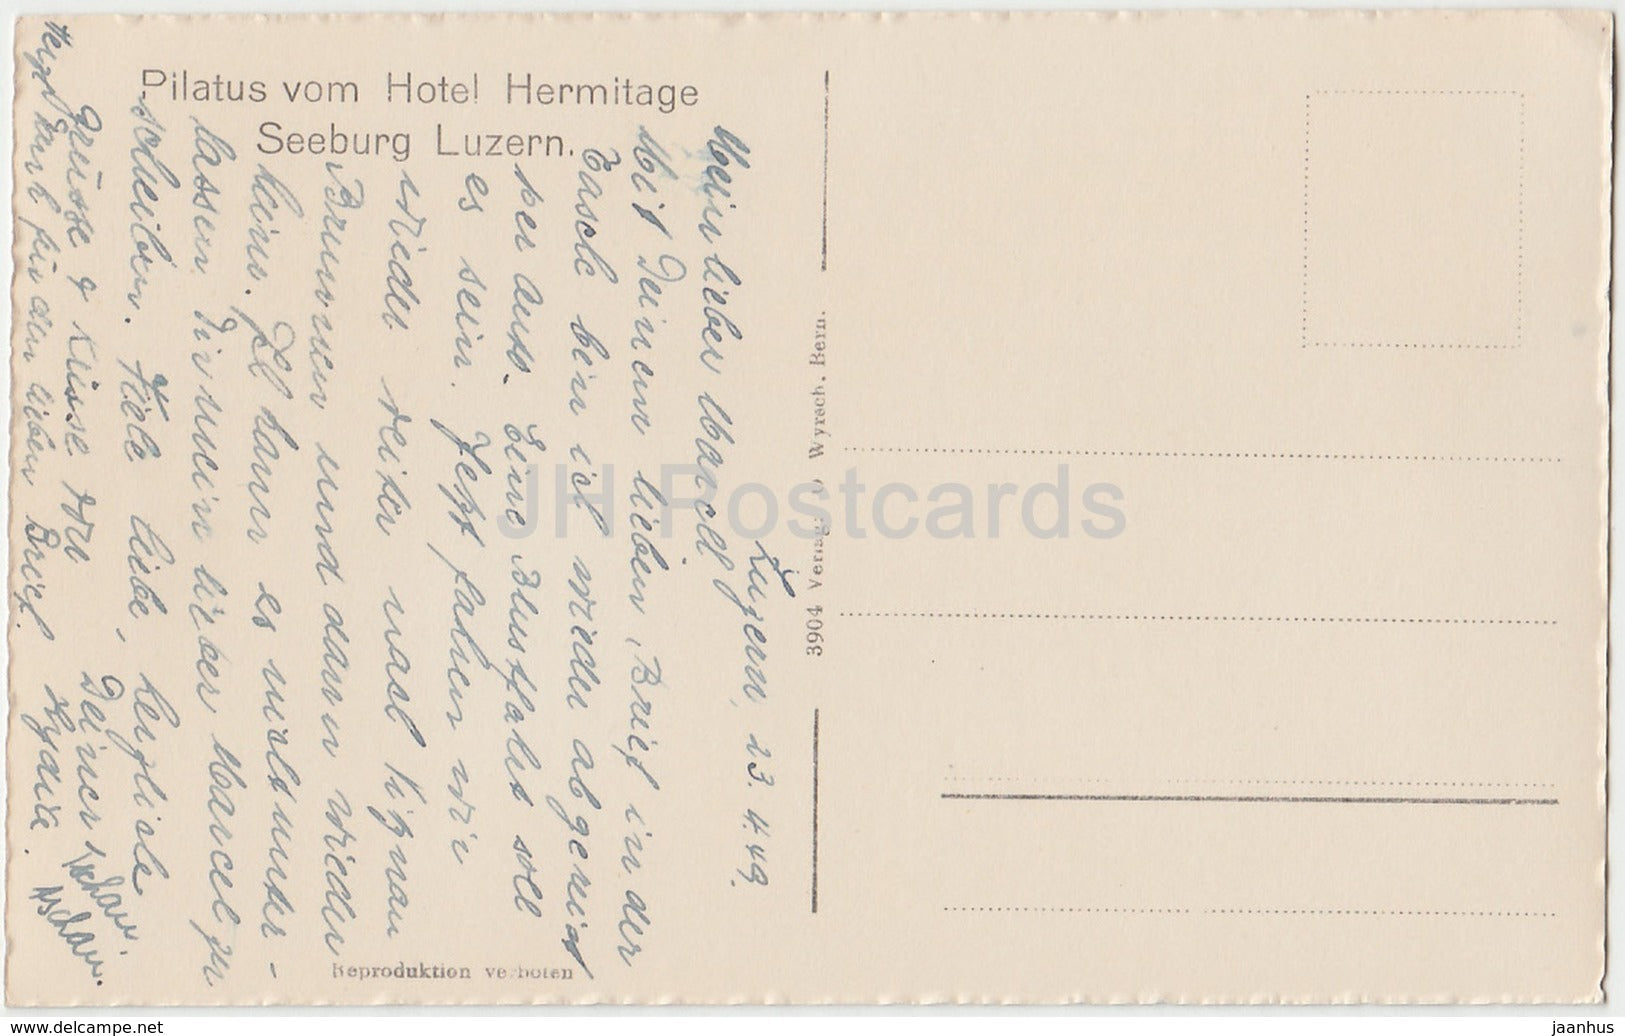 Pilatus vom Hotel Hermitage
Seeburg Luzern.
Luzern, 23. 4. 49.
Mein lieber Marcel
Mit Deinem lieben Brief in der
Tasche bin ich wieder abgereist
per auss. Eine Busfahrt soll
es sein. Jetzt fahren wir
wieder weiter nach Vitznau
Brunnen und dann wieder
heim. Ich kann es nicht unter-
lassen Dir mein lieber Marcel zu
schreiben. Viele liebe, herzliche
Grüsse & Küsse von Deiner
Herzl Dank für den lieben Brief.
3904 Verlag: O Wyrsch, Bern.
Reproduktion verboten
JH Postcards
www.delcampe.net
jaanhus